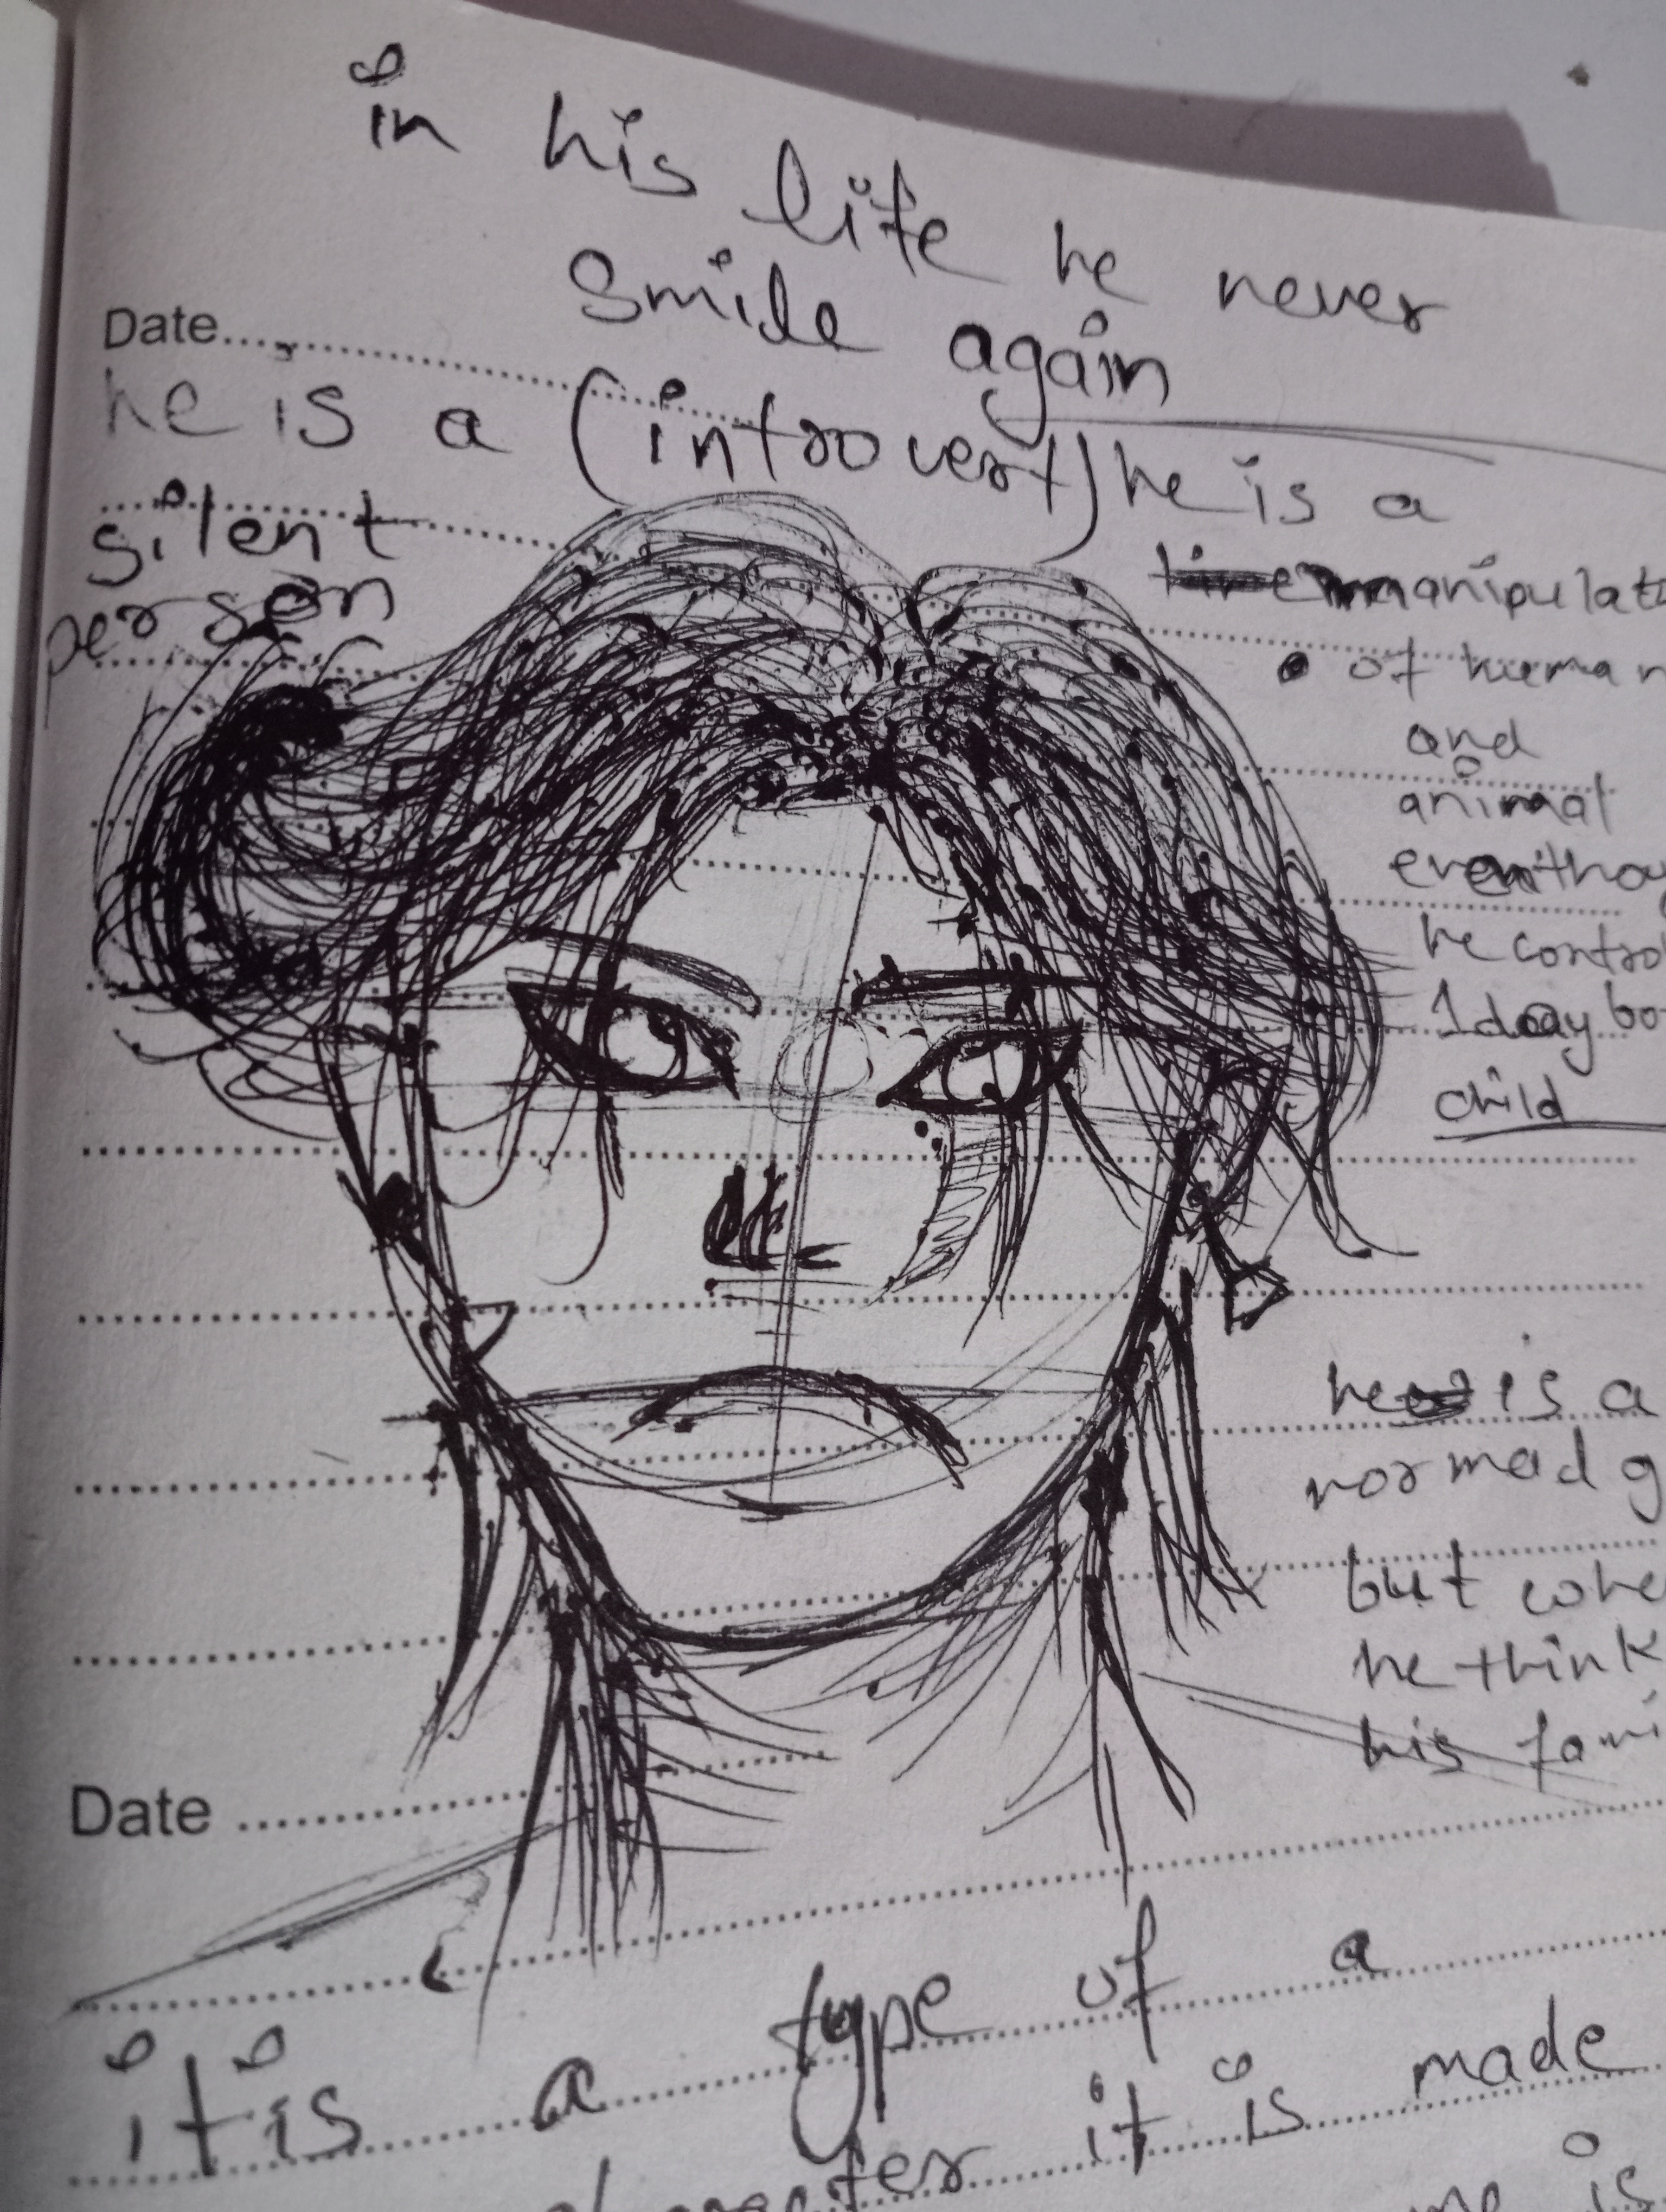 in his life he never
smile again
Date
he is a (introvert) he is a
silent
person
manipulat
of human
and
animal
he contro
1 day bo
child
he is a
normal g
but whe
he think
his fami
Date
it is a type of a
it is made
is